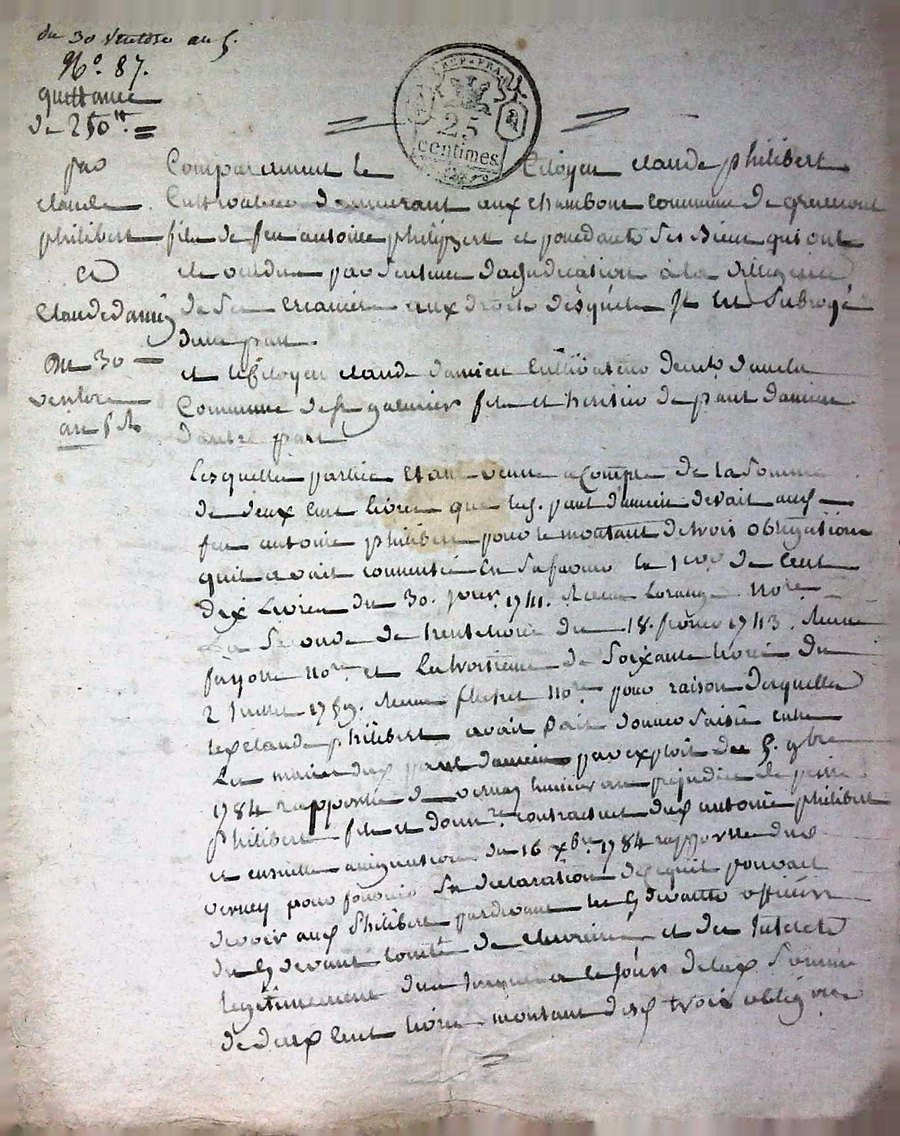 du 30 ventose an 5.
No. 87.
quittance
de 250tt
par
claude
philibert
et
Claude damien
Du 30
ventose
an 5
REP. FRA.
25
centimes
Comparaissent le Citoyen claude philibert
Cultivateur demeurant aux chambons commune de
fils de feu antoine philibert et possedant ses Biens qui ont
ete vendus par sentence dadjudication à la diligence
de ses creanciers aux droits desquels Il est subrogé
dune part.
et le Citoyen claude damien Cultivateur
Commune de st galmier fils et heritier de paul damien
dautre part
Lesquelles parties Etant venu a Compte de la somme
de deux cent livres que led. paul damien devait aud.
feu antoine philibert pour le montant de trois obligations
quil avait consentie En sa faveur la 1ere de Cent
dix Livres du 30. 1741. Recue nore.
La seconde de trente livres du 18. fevrier 1743. Recue
nore et La troisieme de soixante livres du
2 Juillet Recue nore pour raison desquelles
led claude philibert avait fait donner saisie entre
Les mains dud paul damien par exploit du 5. 9bre
1784 rapportée de verney huissier au prejudice de
philibert fils et donre. contractuel dud antoine philibert
et ensuitte assignation du 16 xbre. 1784 rapportée dud
verney pour fournir Sa declaration de ce quil pouvait
devoir aud philibert pardevant les cy devants officiers
du cy devant Comté de et des Interets
legitimement dus jusques a ce jour de lad Somme
de deux cent livres montant desd trois obligations